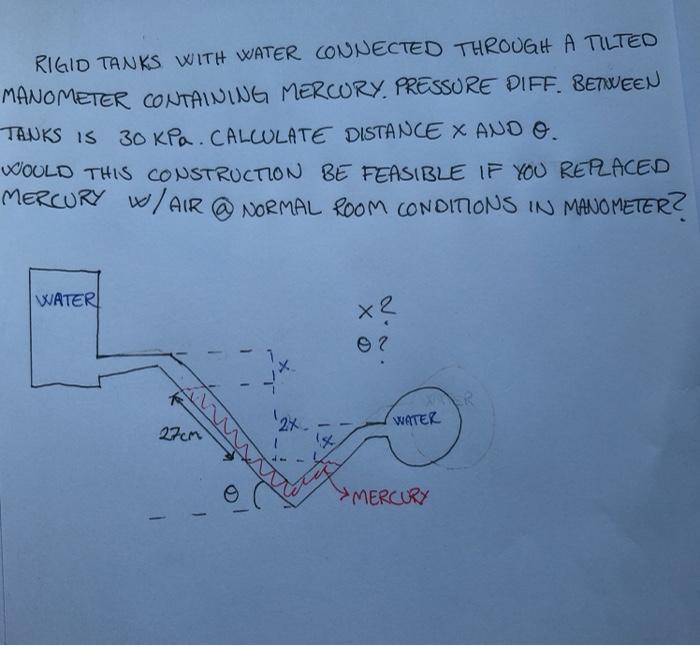 RIGID TANKS WITH WATER CONNECTED THROUGH A TILTED
MANOMETER CONTAINING MERCURY. PRESSURE DIFF. BETWEEN
TANKS IS 30 KPa. CALCULATE DISTANCE X AND θ.
WOULD THIS CONSTRUCTION BE FEASIBLE IF YOU REPLACED
MERCURY W/AIR @ NORMAL ROOM CONDITIONS IN MANOMETER?
WATER
x?
θ?
x
2x
x
WATER
27cm
θ
MERCURY